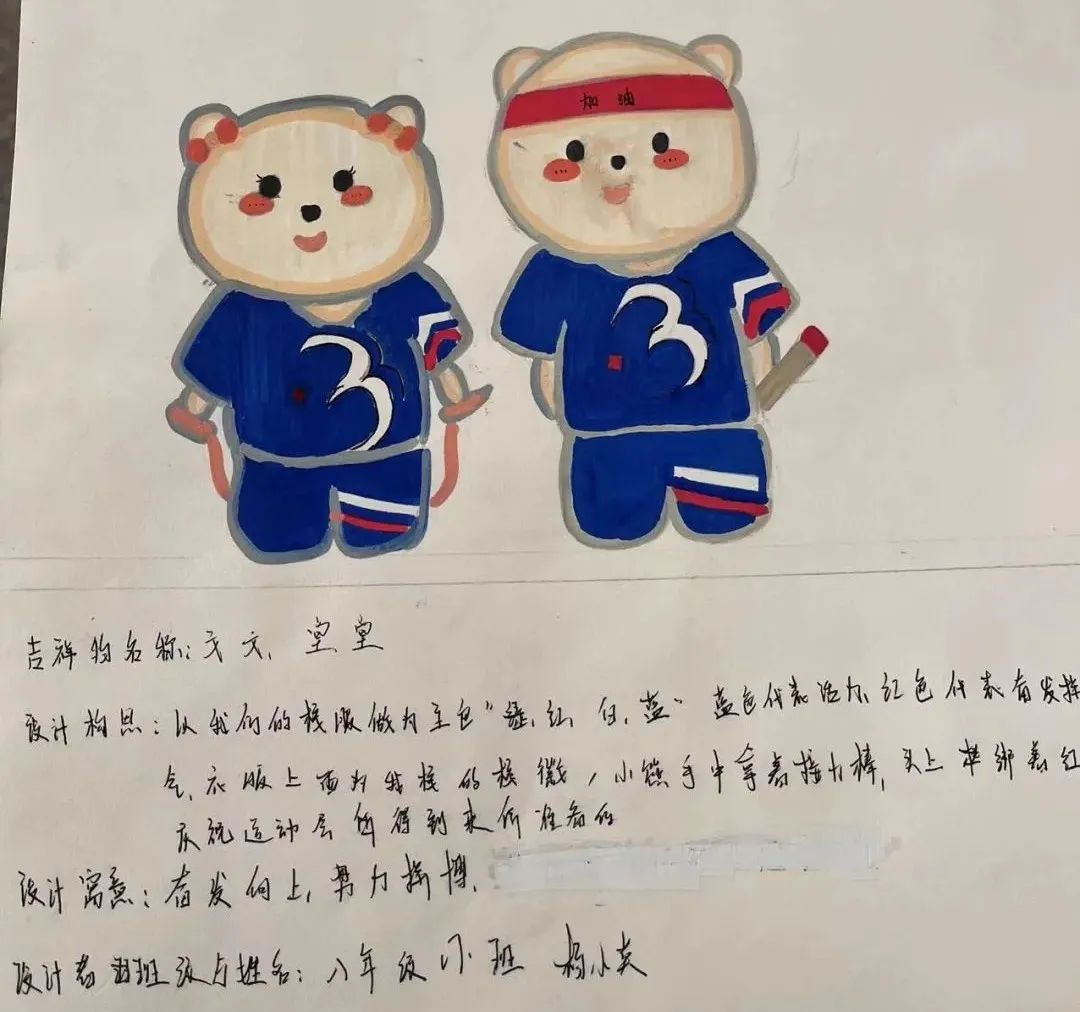 加油
3
3
吉祥物名称:文文、堂堂
设计构思:以我们的校服做为主色"绿、红、白、蓝" 蓝色代表活力、红色代表奋发
气、衣服上面为我校的校徽,小熊手中拿着接力棒,头上 绑着红
庆祝运动会 得到来 准备的
设计寓意:奋发向上,努力拼搏、
设计者 班级与姓名:八年级 班 杨